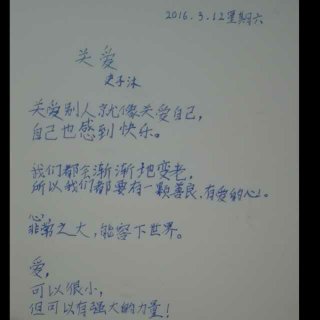 2016.3.12 星期六
关爱
史子沐
关爱别人就像关爱自己,
自己也感到快乐。
我们都会渐渐地变老,
所以我们都要有一颗善良,有爱的心。
心,
非常之大,能容下世界。
爱,
可以很小,
但可以有强大的力量!